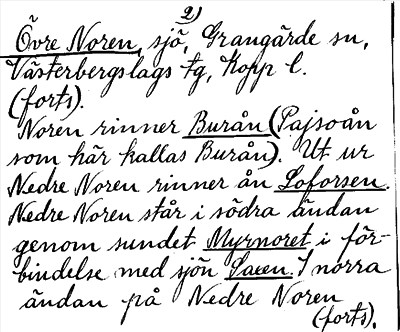 2)
Övre Noren, sjö, Grangärde sn,
Västerbergslags tg, Kopp l.
(forts).
Noren rinner Burån (Pajsoån
som här kallas Burån). Ut ur
Nedre Noren rinner ån Loforsen.
Nedre Noren står i södra ändan
genom sundet Myrnoret i för-
bindelse med sjön Saxen. I norra
ändan på Nedre Noren
(forts).